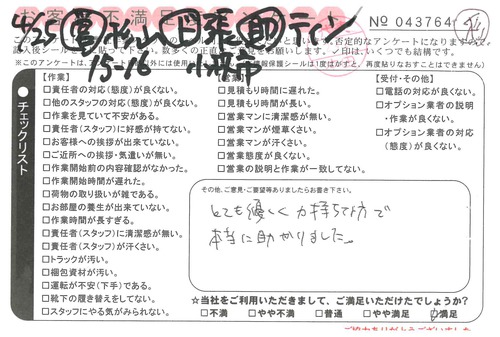 お客様不満足
4/25 営 松山 日張 ティン
15-16 小牧市
№ 043764
【作業】
□責任者の対応(態度)が良くない。
□他のスタッフの対応(態度)が良くない。
□作業を見ていて不安がある。
□責任者(スタッフ)に好感が持てない。
□お客様への挨拶が出来ていない。
□ご近所への挨拶・気遣いが無い。
□作業開始前の内容確認がなかった。
□作業開始時間が遅れた。
□荷物の取り扱いが雑である。
□お部屋の養生が出来ていない。
□作業時間が長すぎる。
□責任者(スタッフ)に清潔感が無い。
□責任者(スタッフ)が汗くさい。
□トラックが汚い。
□梱包資材が汚い。
□運転が不安(下手)である。
□靴下の履き替えをしてない。
□スタッフにやる気がみられない。
チェックリスト
【営業】
□見積もり時間に遅れた。
□見積もり時間が長い。
□営業マンに清潔感が無い。
□営業マンが煙草くさい。
□営業マンが汗くさい。
□営業態度が良くない。
□営業の説明と作業が一致してない。
【受付・その他】
□電話の対応が良くない。
□オプション業者の説明
・作業が良くない。
□オプション業者の対応
(態度)が良くない。
その他、ご意見・ご要望等ありましたらお書き下さい。
とても優しく力持ちな方で
本当に助かりました。
☆当社をご利用いただきまして、ご満足いただけたでしょうか?
□不満 □やや不満 □普通 □やや満足 ☑満足
ご協力ありがとうございました